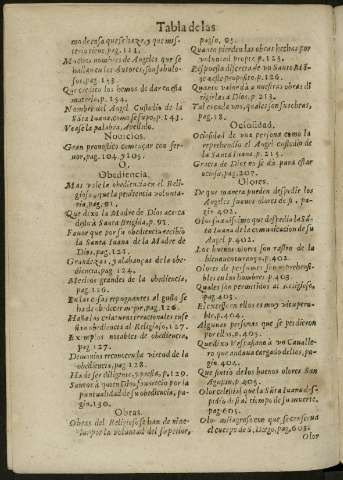 Tabla de las
modo de cosa que se haze, y que mis-
terio tiene, pag. 121.
Muchos nombres de Angeles que se
hallan en los Autores, son fabulo-
sos, pag. 153.
Que credito los hemos de dar en esta
materia, p. 154.
Nombre del Angel Custodio de la
Sãta Iuana, como se supo, p. 141.
Vease la palabra, Avelino.
Novicios.
Gran pronostico començar con fer-
vor, pag. 104. y 105.
O.
Obediencia.
Mas vale la obediencia en el Reli-
gioso, que la penitencia volunta-
ria, pag. 91.
Que dixo la Madre de Dios acerca
desto à Santa Brigida, 91.
Favor que por su obediencia recibiò
la Santa Iuana de la Madre de
Dios, pag. 121.
Grandezas, y alabanças de la obe-
diencia, pag. 124.
Meritos grandes de la obediencia,
pag. 126.
En las cosas repugnantes al gusto se
ha de obedecer mejor, pag. 126.
Hasta las criaturas irracionales ense-
ñan obediencia al Religioso, 127.
Exemplos notables de obediencia,
pag. 127.
Demonios reconocen la virtud de la
obediencia, pag. 128.
Ha de ser diligente, y presta, p. 129.
Santos à quien Dios favoreciò por la
puntualidad de su obediencia, pa-
gin. 130.
Obras.
Obras del Religioso se han de nive-
lar por la voluntad del superior,
pagso, 95.
Quanto pierden las obras hechas por
voluntad propia, p. 123.
Respuesta discreta de vn Santo Abad
à este proposito, p. 126.
Quanto valdrà a nuestras obras di-
rigirlas à Dios, p. 213.
Tal es cada vno, quales son sus obras,
pag. 18.
Ociosidad.
Ociosidad de vna persona como la
reprehendiò el Angel Custodio de
la Santa Iuana. p. 215.
Gracia de Dios no se dà para estar
ociosa, pag. 207.
Olores.
De que manera pueden despedir los
Angeles suaves olores de si, pa-
gin. 402.
Olor suavissimo que despedia la Sã-
ta Iuana de la comunicacion de su
Angel. p. 402.
Los buenos olores son rastro de la
bienaventurança, p. 402.
Olores de personas son
bles en los hombres p. 403.
Quales son permitidos al Religioso,
pag. 403.
El exceso en ellos es muy vitupera-
ble, p. 404.
Algunas personas que se perdieron
por ellos. p. 405.
Que dixo Vespasiano à vn Cavalle-
ro que andava cargado dellos, pa-
gin. 404.
Que sintiò de los buenos olores San
Agustin, p. 403.
Olor celestial que la Sãta Iuana des-
pidiò de si al tiempo de su muerte,
pag. 605.
Olor milagroso con que se conserva
el cuerpo de S. Diego, pag. 603.
Olor